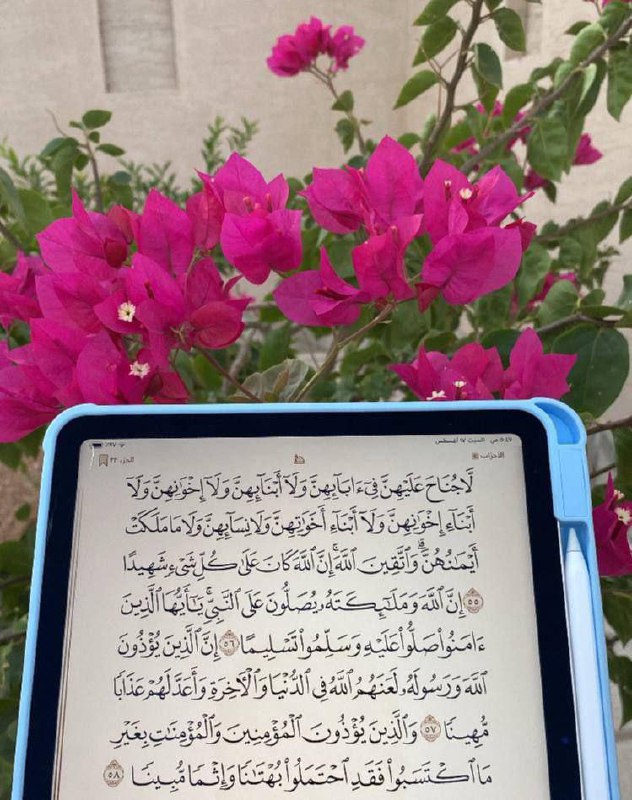 ٥:٤٧ ص السبت ١٧ أغسطس
الأحزاب
الجزء ٢٢
لَّا جُنَاحَ عَلَيْهِنَّ فِىٓ ءَابَآئِهِنَّ وَلَآ أَبْنَآئِهِنَّ وَلَآ إِخْوَٰنِهِنَّ وَلَآ
أَبْنَآءِ إِخْوَٰنِهِنَّ وَلَآ أَبْنَآءِ أَخَوَٰتِهِنَّ وَلَا نِسَآئِهِنَّ وَلَا مَا مَلَكَتْ
أَيْمَٰنُهُنَّ ۗ وَٱتَّقِينَ ٱللَّهَ ۚ إِنَّ ٱللَّهَ كَانَ عَلَىٰ كُلِّ شَىْءٍ شَهِيدًا
٥٥ إِنَّ ٱللَّهَ وَمَلَٰٓئِكَتَهُۥ يُصَلُّونَ عَلَى ٱلنَّبِىِّ ۚ يَٰٓأَيُّهَا ٱلَّذِينَ
ءَامَنُوا۟ صَلُّوا۟ عَلَيْهِ وَسَلِّمُوا۟ تَسْلِيمًا ٥٦ إِنَّ ٱلَّذِينَ يُؤْذُونَ
ٱللَّهَ وَرَسُولَهُۥ لَعَنَهُمُ ٱللَّهُ فِى ٱلدُّنْيَا وَٱلْءَاخِرَةِ وَأَعَدَّ لَهُمْ عَذَابًا
مُّهِينًا ٥٧ وَٱلَّذِينَ يُؤْذُونَ ٱلْمُؤْمِنِينَ وَٱلْمُؤْمِنَٰتِ بِغَيْرِ
مَا ٱكْتَسَبُوا۟ فَقَدِ ٱحْتَمَلُوا۟ بُهْتَٰنًا وَإِثْمًا مُّبِينًا ٥٨